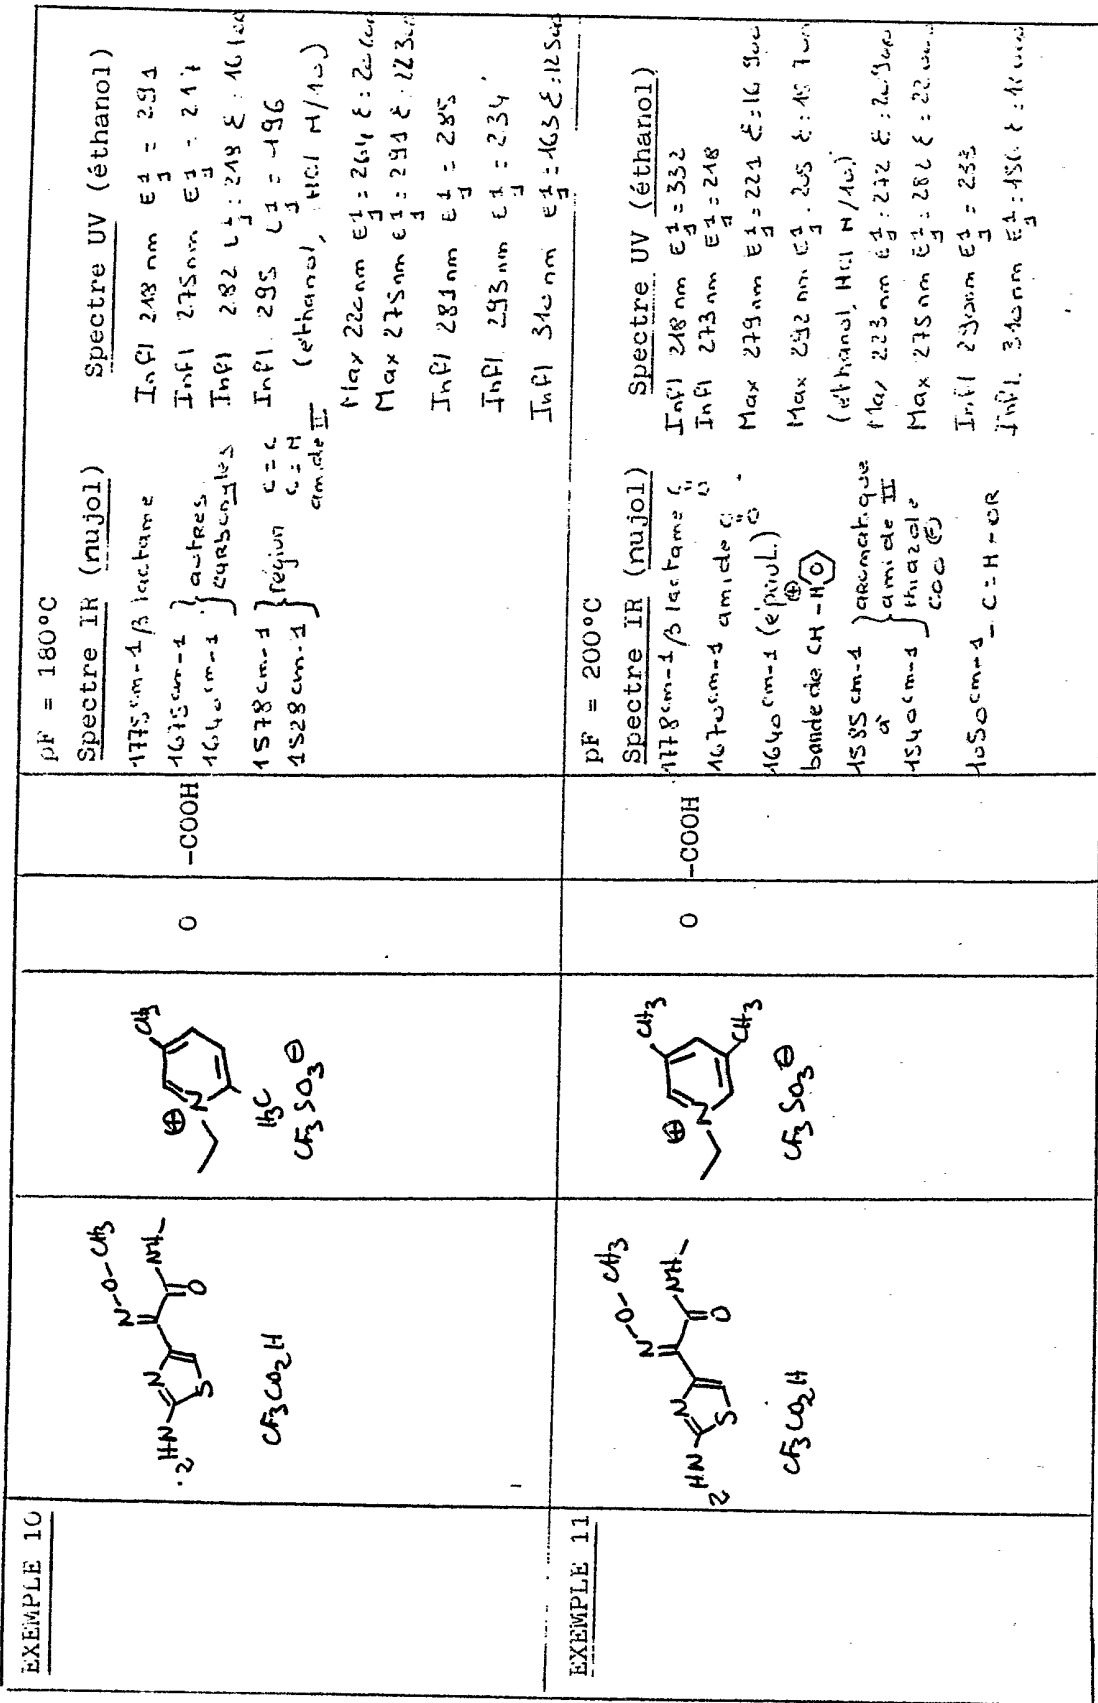 EXEMPLE 10
N-O-CH3
NH-
O
N
S
2HN
CF3CO2H
CH3
⊕
N
H3C
CF3SO3⊖
O
-COOH
pF = 180°C
Spectre IR (nujol)
1775 cm-1 β lactame
1675 cm-1 } autres
1640 cm-1 } carbonyles
1578 cm-1 } région C=C
1528 cm-1 } C=N
amide II
Spectre UV (éthanol)
Infl 218 nm E1 1 = 291
Infl 275 nm E1 1 = 217
Infl 282 E1 1 : 219 ε :
Infl. 295 E1 1 = 196
(éthanol, HCl N/10)
Max 220 nm E1 1 = 264 ε :
Max 275 nm E1 1 = 291 ε :
Infl 281 nm E1 1 = 285
Infl. 293 nm E1 1 = 234
Infl 310 nm E1 1 = 163 ε :
EXEMPLE 11
N-O-CH3
NH-
O
N
S
HN
2
CF3CO2H
CH3
CH3
⊕
N
CF3SO3⊖
O
-COOH
pF = 200°C
Spectre IR (nujol)
1778 cm-1 β lactame C=O
1670 cm-1 amide C=O
1640 cm-1 (épaul.)
bande de CH-N⊕
1585 cm-1 } aromatique
à } amide II
1540 cm-1 } thiazole
COO⊖
1050 cm-1 - C=N-OR
Spectre UV (éthanol)
Infl 218 nm E1 1 = 332
Infl 273 nm E1 1 = 218
Max 279 nm E1 1 = 221 ε : 16 900
Max 292 nm E1 1 = 205 ε : 15 700
(éthanol, HCl N/10)
Max 223 nm E1 1 : 272 ε :
Max 275 nm E1 1 : 282 ε :
Infl 290 nm E1 1 = 233
Infl. 310 nm E1 1 :